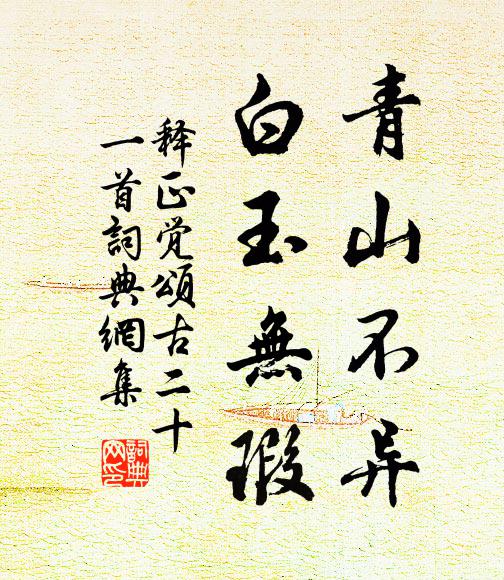 青山不异
白玉無瑕
释正觉頌古二十
一首詞典網集
詞典
网印